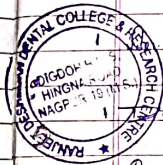 RANJEET DESHMUKH DENTAL COLLEGE & RESEARCH CENTRE
DIGDOH
HINGNA ROAD
NAGPUR 19